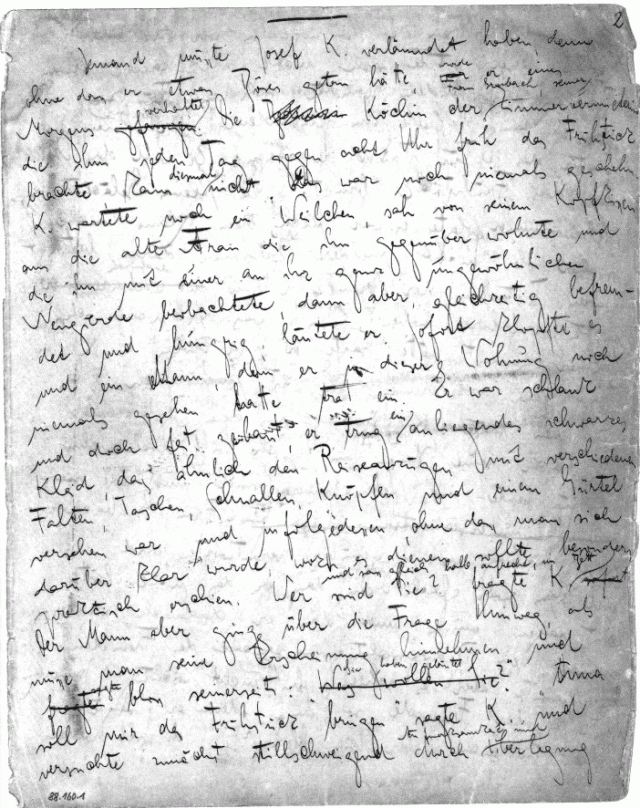 2
Jemand musste Josef K. verläumdet haben, denn
ohne dass er etwas Böses getan hätte, wurde er eines
Morgens verhaftet. Die Köchin der Zimmervermieterin
Frau Grubach, seiner
die ihm jeden Tag gegen acht Uhr früh das Frühstück
brachte kam diesmal nicht. Das war noch niemals geschehn.
K. wartete noch ein Weilchen, sah von seinem Kopfkissen
aus die alte Frau die ihm gegenüber wohnte und
die ihn mit einer an ihr ganz ungewöhnlichen
Neugierde beobachtete, dann aber, gleichzeitig befrem-
det und hungrig, läutete er. Sofort klopfte es
und ein Mann, den er in dieser Wohnung noch
niemals gesehen hatte trat ein. Er war schlank
und doch fest gebaut, er trug ein anliegendes schwarzes
Kleid, das ähnlich den Reiseanzügen mit verschiedenen
Falten, Taschen, Schnallen, Knöpfen und einem Gürtel
versehen war und infolgedessen, ohne dass man sich
darüber klar wurde, wozu es dienen sollte, besonders
praktisch erschien. Wer sind Sie? fragte K.
und sass gleich halb aufrecht im Bett
Der Mann aber ging über die Frage hinweg, als
müsse man seine Erscheinung hinnehmen und
sagte bloss seinerseits: Sie haben geläutet? Anna
soll mir das Frühstück bringen sagte K. und
versuchte zunächst stillschweigend durch Überlegung
88.160.1